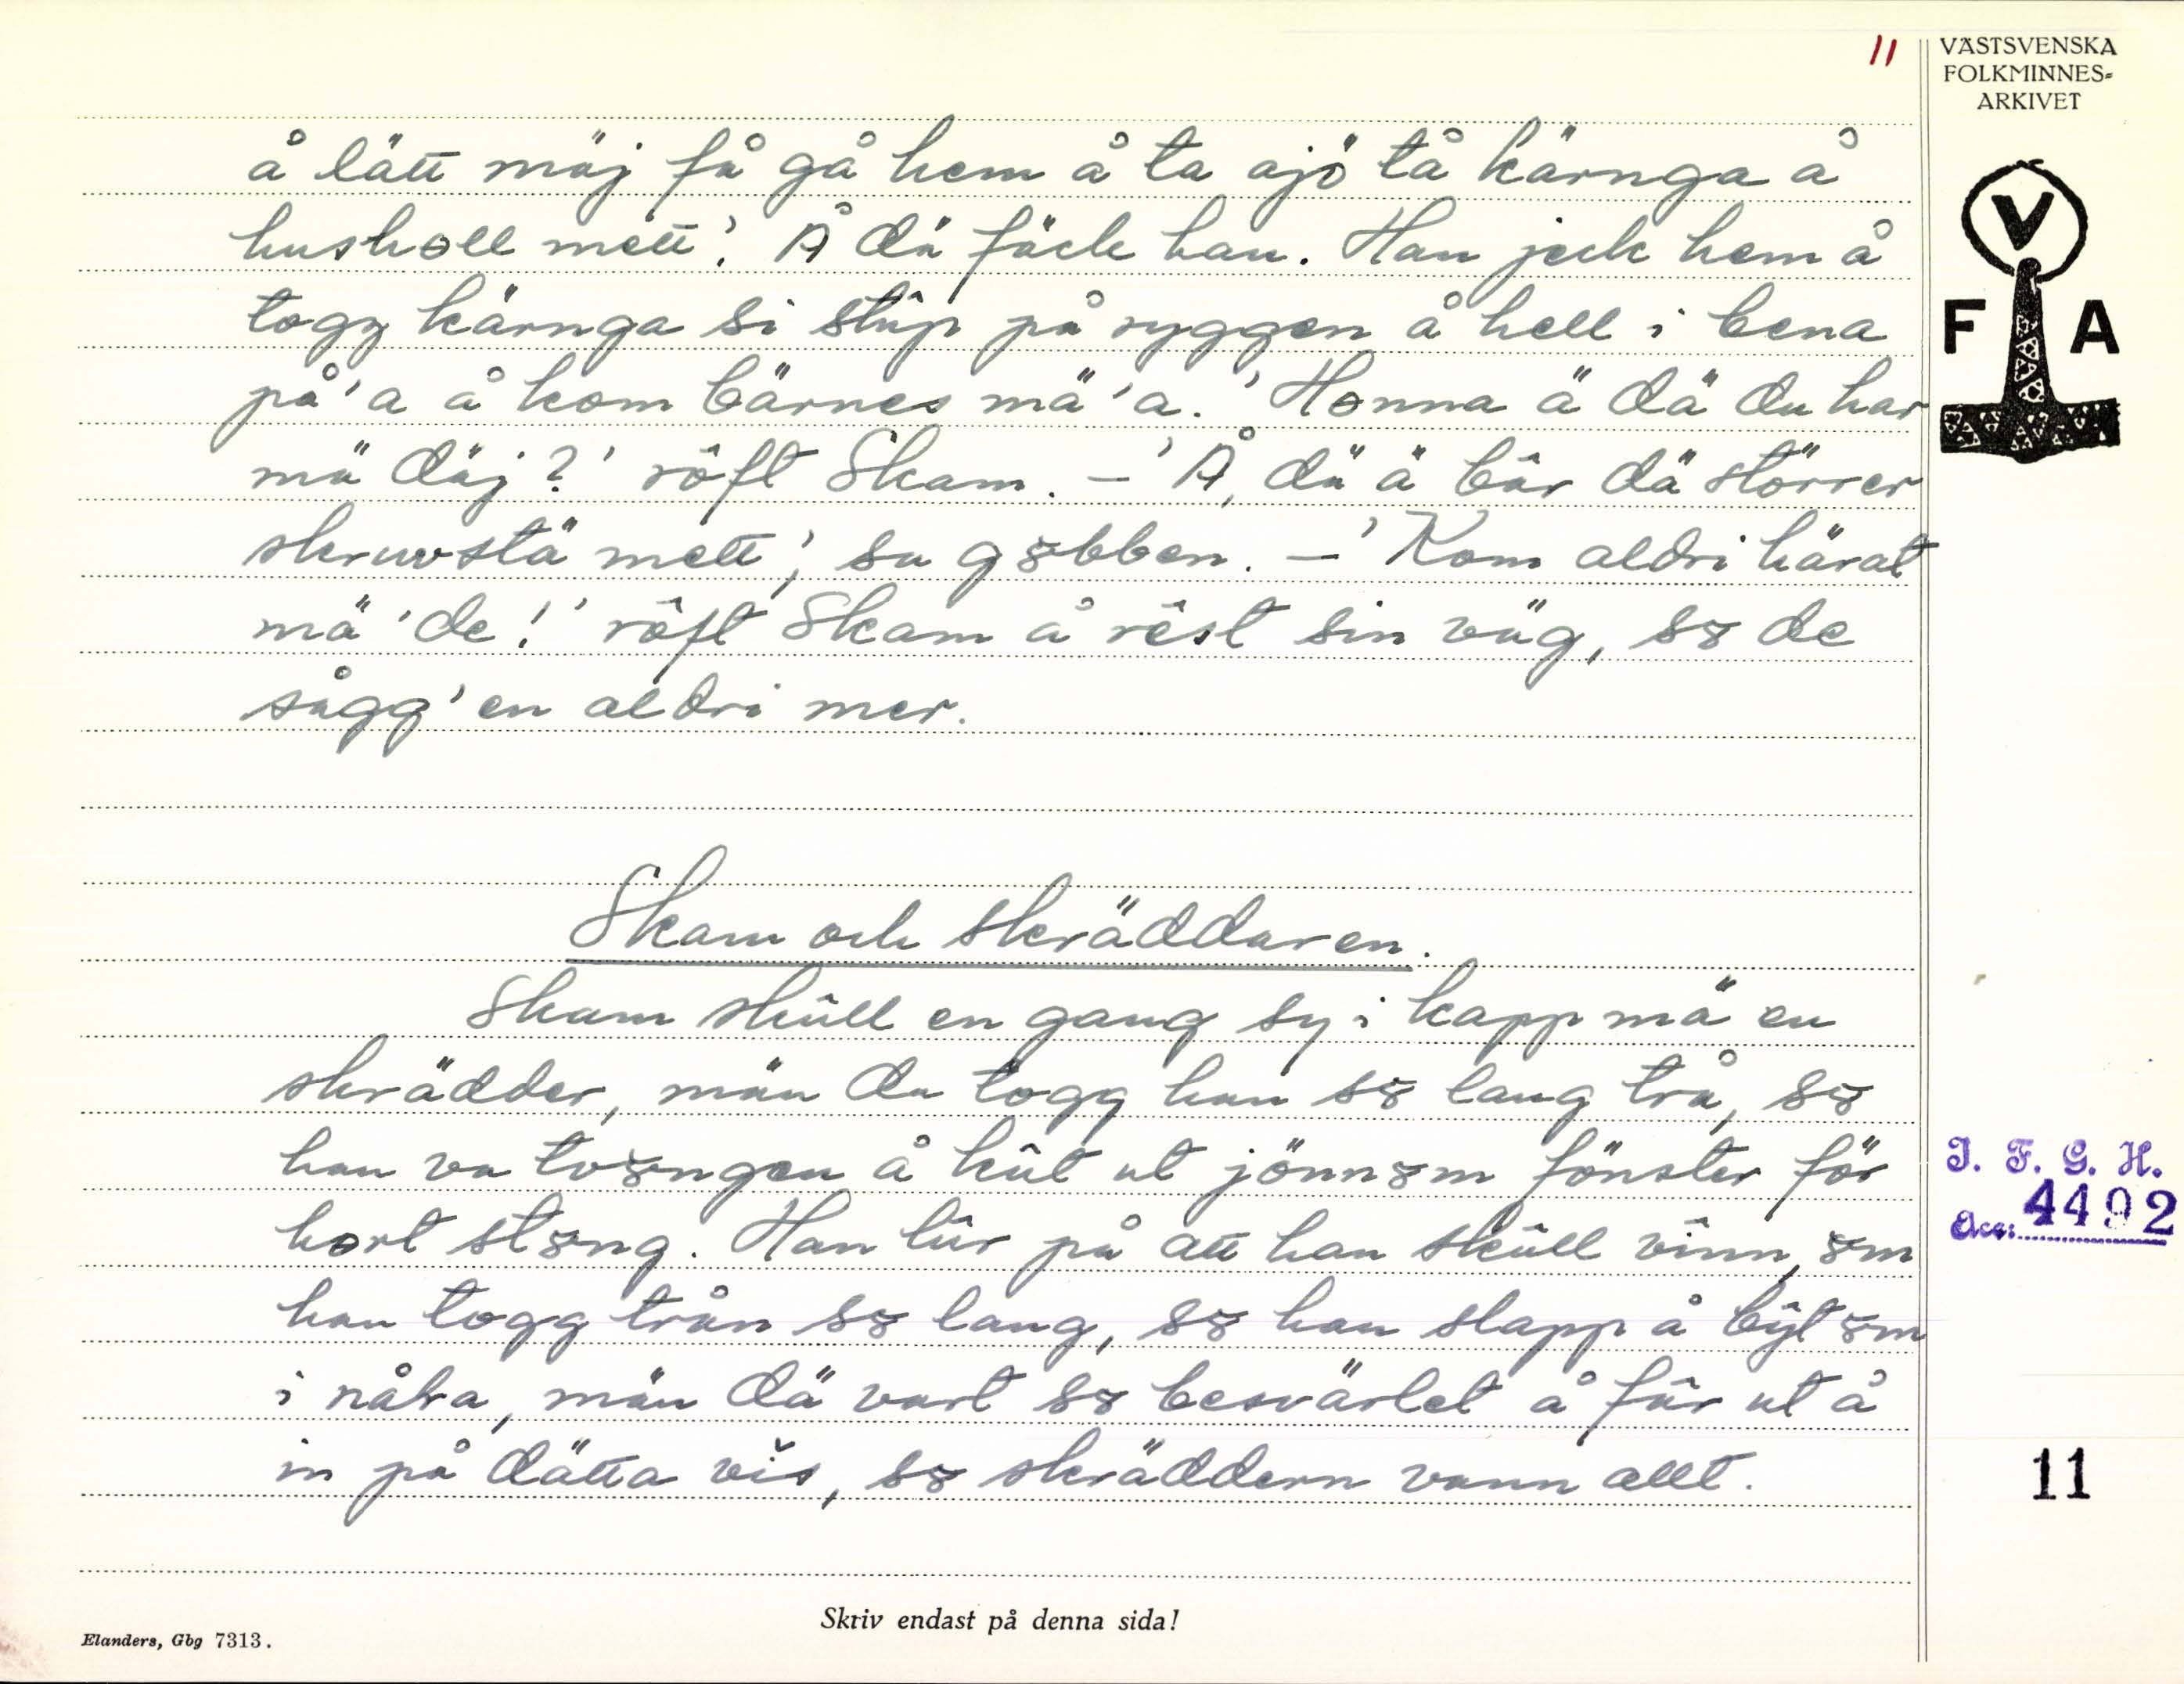 11
VÄSTSVENSKA
FOLKMINNES-
ARKIVET
V
F A
å lätt mäj få gå hem å ta ajö tå kärnga å
husholl mett'. Å dä fäck han. Han jeck hem å
togg kärnga si stûp på ryggen å hell i bena
på'a å kom bärnes mä'a. 'Honna ä dä du har
mä däj?' rôft Skam. – 'Å, dä ä bâr dä störrer
skruvstä mett', sa gꝏbben. – 'Kom aldri härat
mä 'de!' rôft Skam å rêst sin väg, sꝏ de
sågg'en aldri mer.
Skam och skräddaren.
Skam skûll en gang sy i kapp mä en
skrädder, män da togg han sꝏ lang trå, sꝏ
han va tvꝏngen å kût ut jönnꝏm fönster för
hort stꝏng. Han lûr på att han skûll vinn, ꝏm
han togg trån sꝏ lang, sꝏ han slapp å bŷt ꝏm
i nåla, män dä vart sꝏ besvärlet å fâr ut å
in på dätta vis, sꝏ skräddern vann allt.
I. F. G. H.
Acc: 4492
11
Skriv endast på denna sida!
Elanders, Gbg 7313.